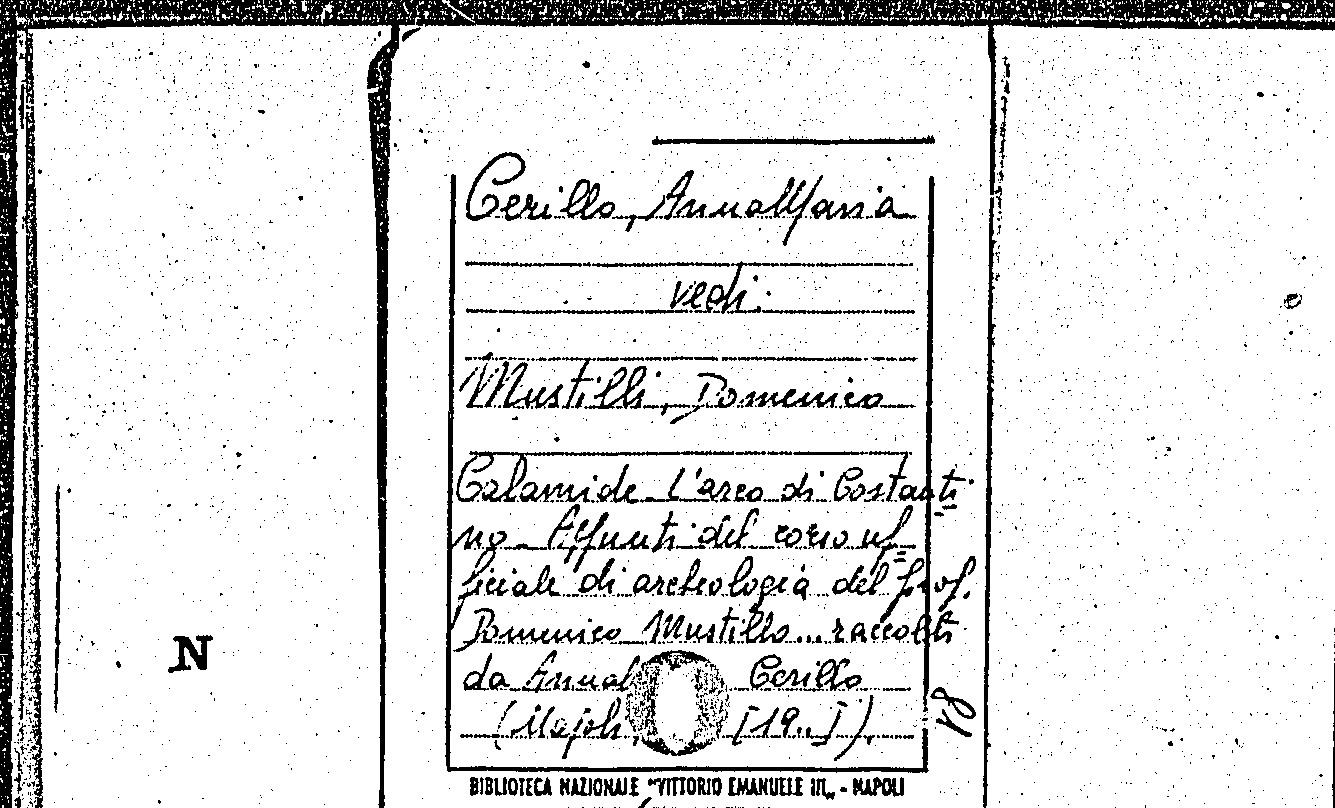 Cerillo, AnnaMaria
vedi:
Mustilli, Domenico
Calamide. L'arco di Costanti=
no. Appunti del corso uf=
ficiale di archeologia del prof.
Domenico Mustillo... raccolti
da Cerillo
(Napoli, [19..]).
N
BIBLIOTECA NAZIONALE "VITTORIO EMANUELE III„ - NAPOLI